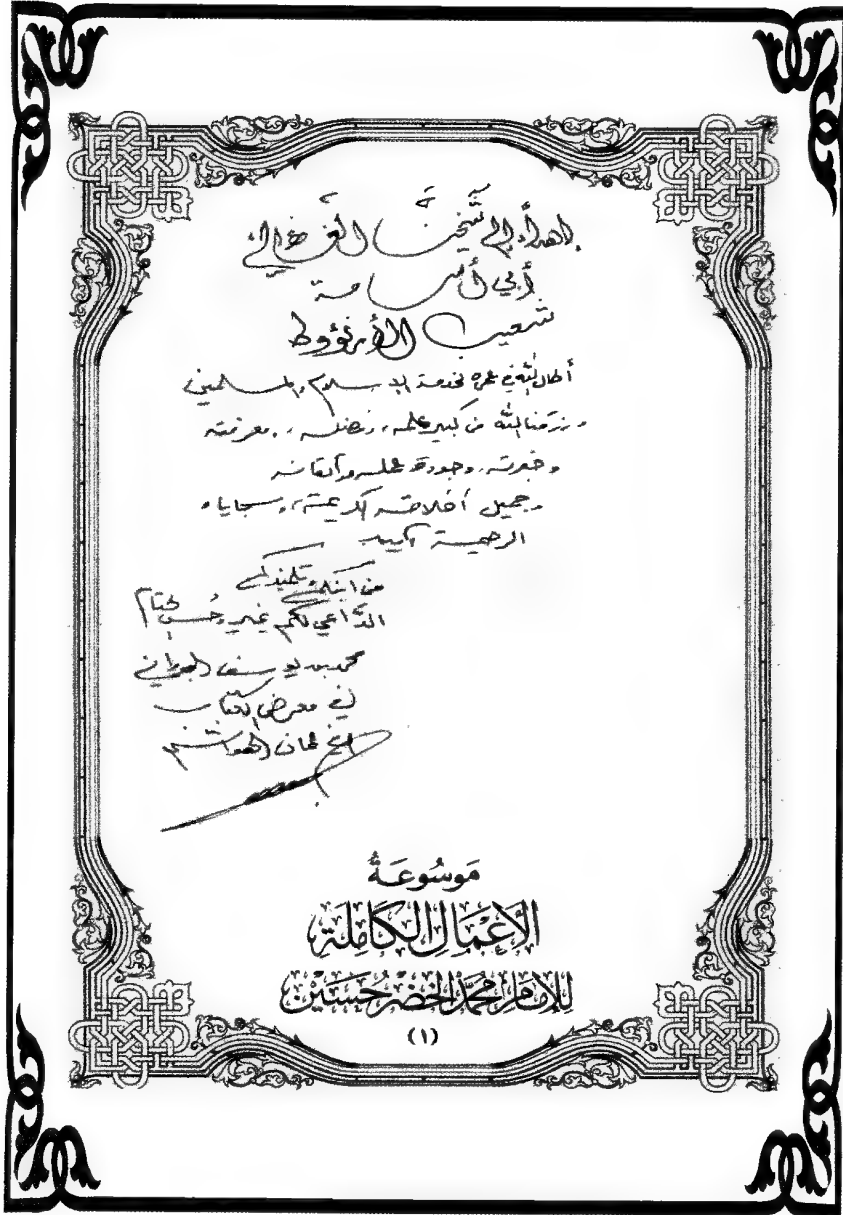 إهداء إلى شيخنا الغالي
أبي أسامة
شعيب الأرنؤوط
أطال الله في عمره لخدمة الإسلام والمسلمين
ورزقنا الله من كبير علمه، وفضله، ومعرفته
وخبرته، وجودة عمله وإتقانه
وجميل أخلاقه الكريمة، وسجاياه
الرحيمة آمين
من ابنكم وتلميذكم
الداعي لكم بخير وحسن ختام
محمد بن يوسف
في معرض الكتاب
عمان
مَوسُوعَةُ
الأَعْمَالِ الكَامِلَةِ
لِلإِمَامِ مُحَمَّد الخَضِر حُسَيْن
(١)